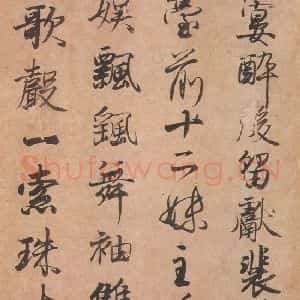 宴醉後留獻裴
臺前十二姝主
娛飄飄舞袖雙
歌聲一索珠
Shufawang.CN